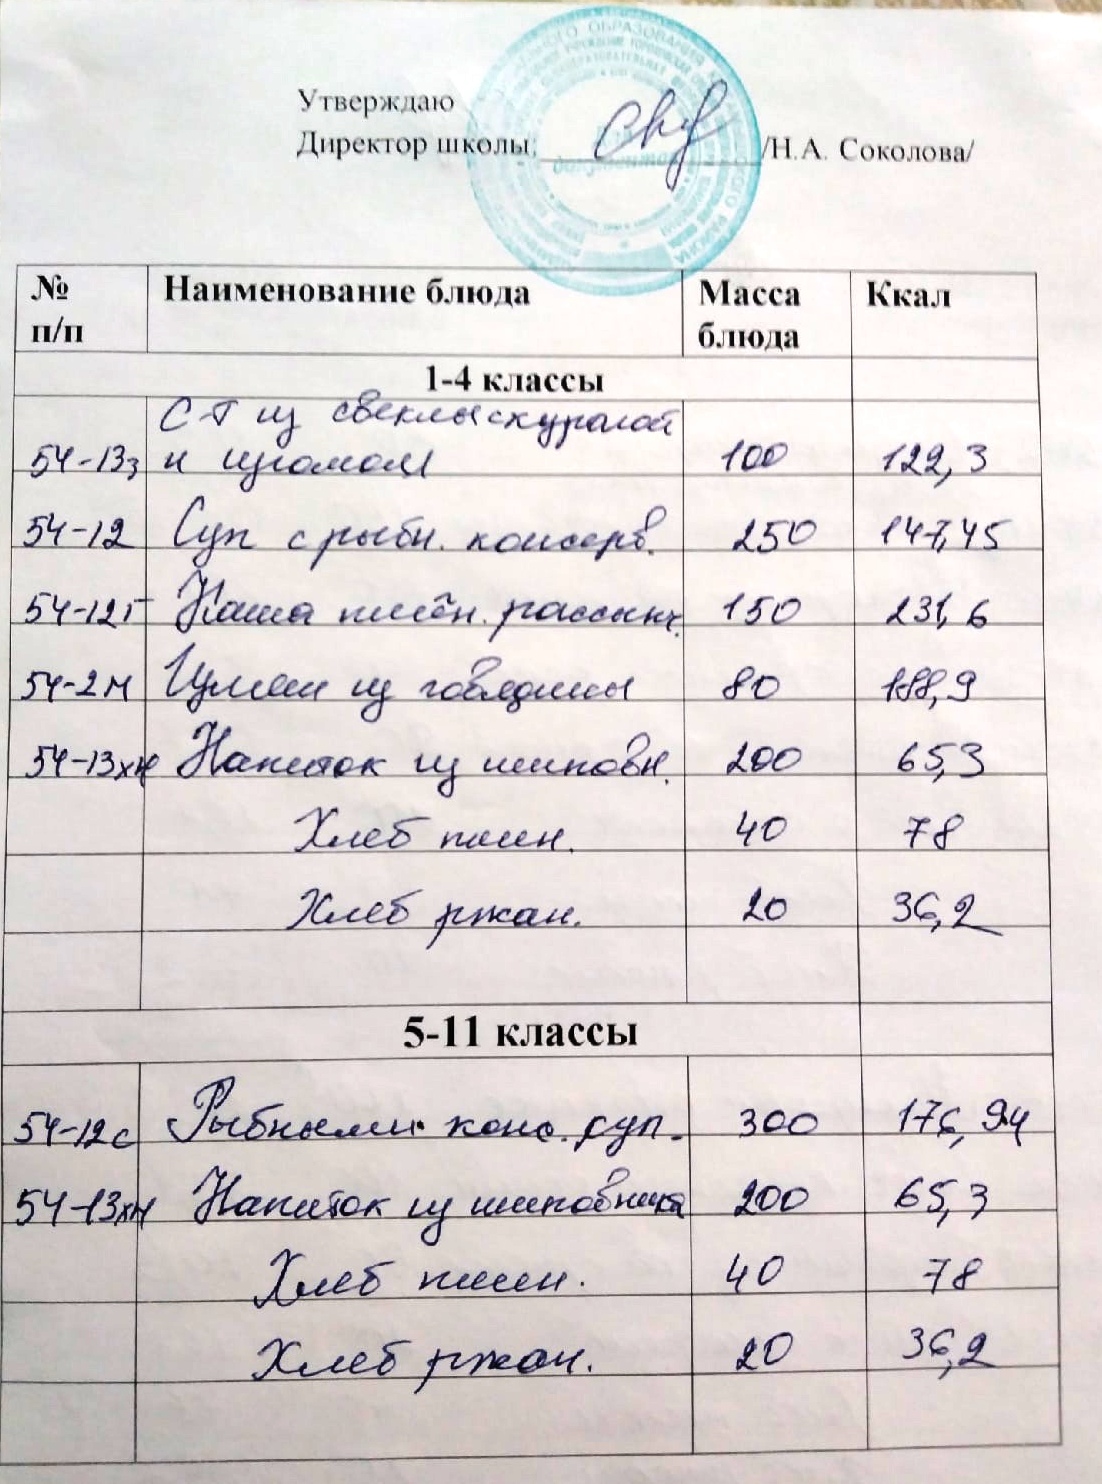 Утверждаю
Директор школы: /Н.А. Соколова/
№ п/п Наименование блюда Масса блюда Ккал
1-4 классы
С-т из свеклы с курагой
54-13з и изюмом 100 122,3
54-12 Суп с рыбн. консерв. 250 147,45
54-12г Каша пшён. рассыпч. 150 231,6
54-2м Гуляш из говядины 80 188,9
54-13хн Напиток из шиповн. 200 65,3
Хлеб пшен. 40 78
Хлеб ржан. 20 36,2
5-11 классы
54-12с Рыбными конс. суп. 300 176,94
54-13хн Напиток из шиповника 200 65,3
Хлеб пшен. 40 78
Хлеб ржан. 20 36,2